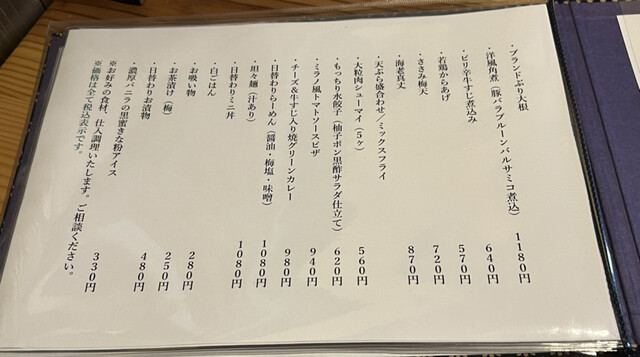 ・ブランドぶり大根 1180円
・洋風角煮(豚バラプルーンバルサミコ煮込) 640円
・ピリ辛牛すじ煮込み 570円
・若鶏からあげ 720円
・ささみ梅天 870円
・海老真丈
・天ぷら盛合わせ/ミックスフライ
・大粒肉シューマイ(5ヶ) 560円
・もっちり水餃子(柚子ポン黒酢サラダ仕立て) 620円
・ミラノ風トマトソースピザ 940円
・チーズ&牛すじ入り焼グリーンカレー 980円
・日替わりらーめん(醤油・梅塩・味噌) 1080円
・坦々麺(汁あり) 1080円
・日替わりミニ丼
・白ごはん
・お吸い物 280円
・お茶漬け(梅) 250円
・日替わりお漬物 480円
・濃厚バニラの黒蜜きな粉アイス 330円
※お好みの食材、仕入調理いたします。ご相談ください。
※価格は全て税込表示です。